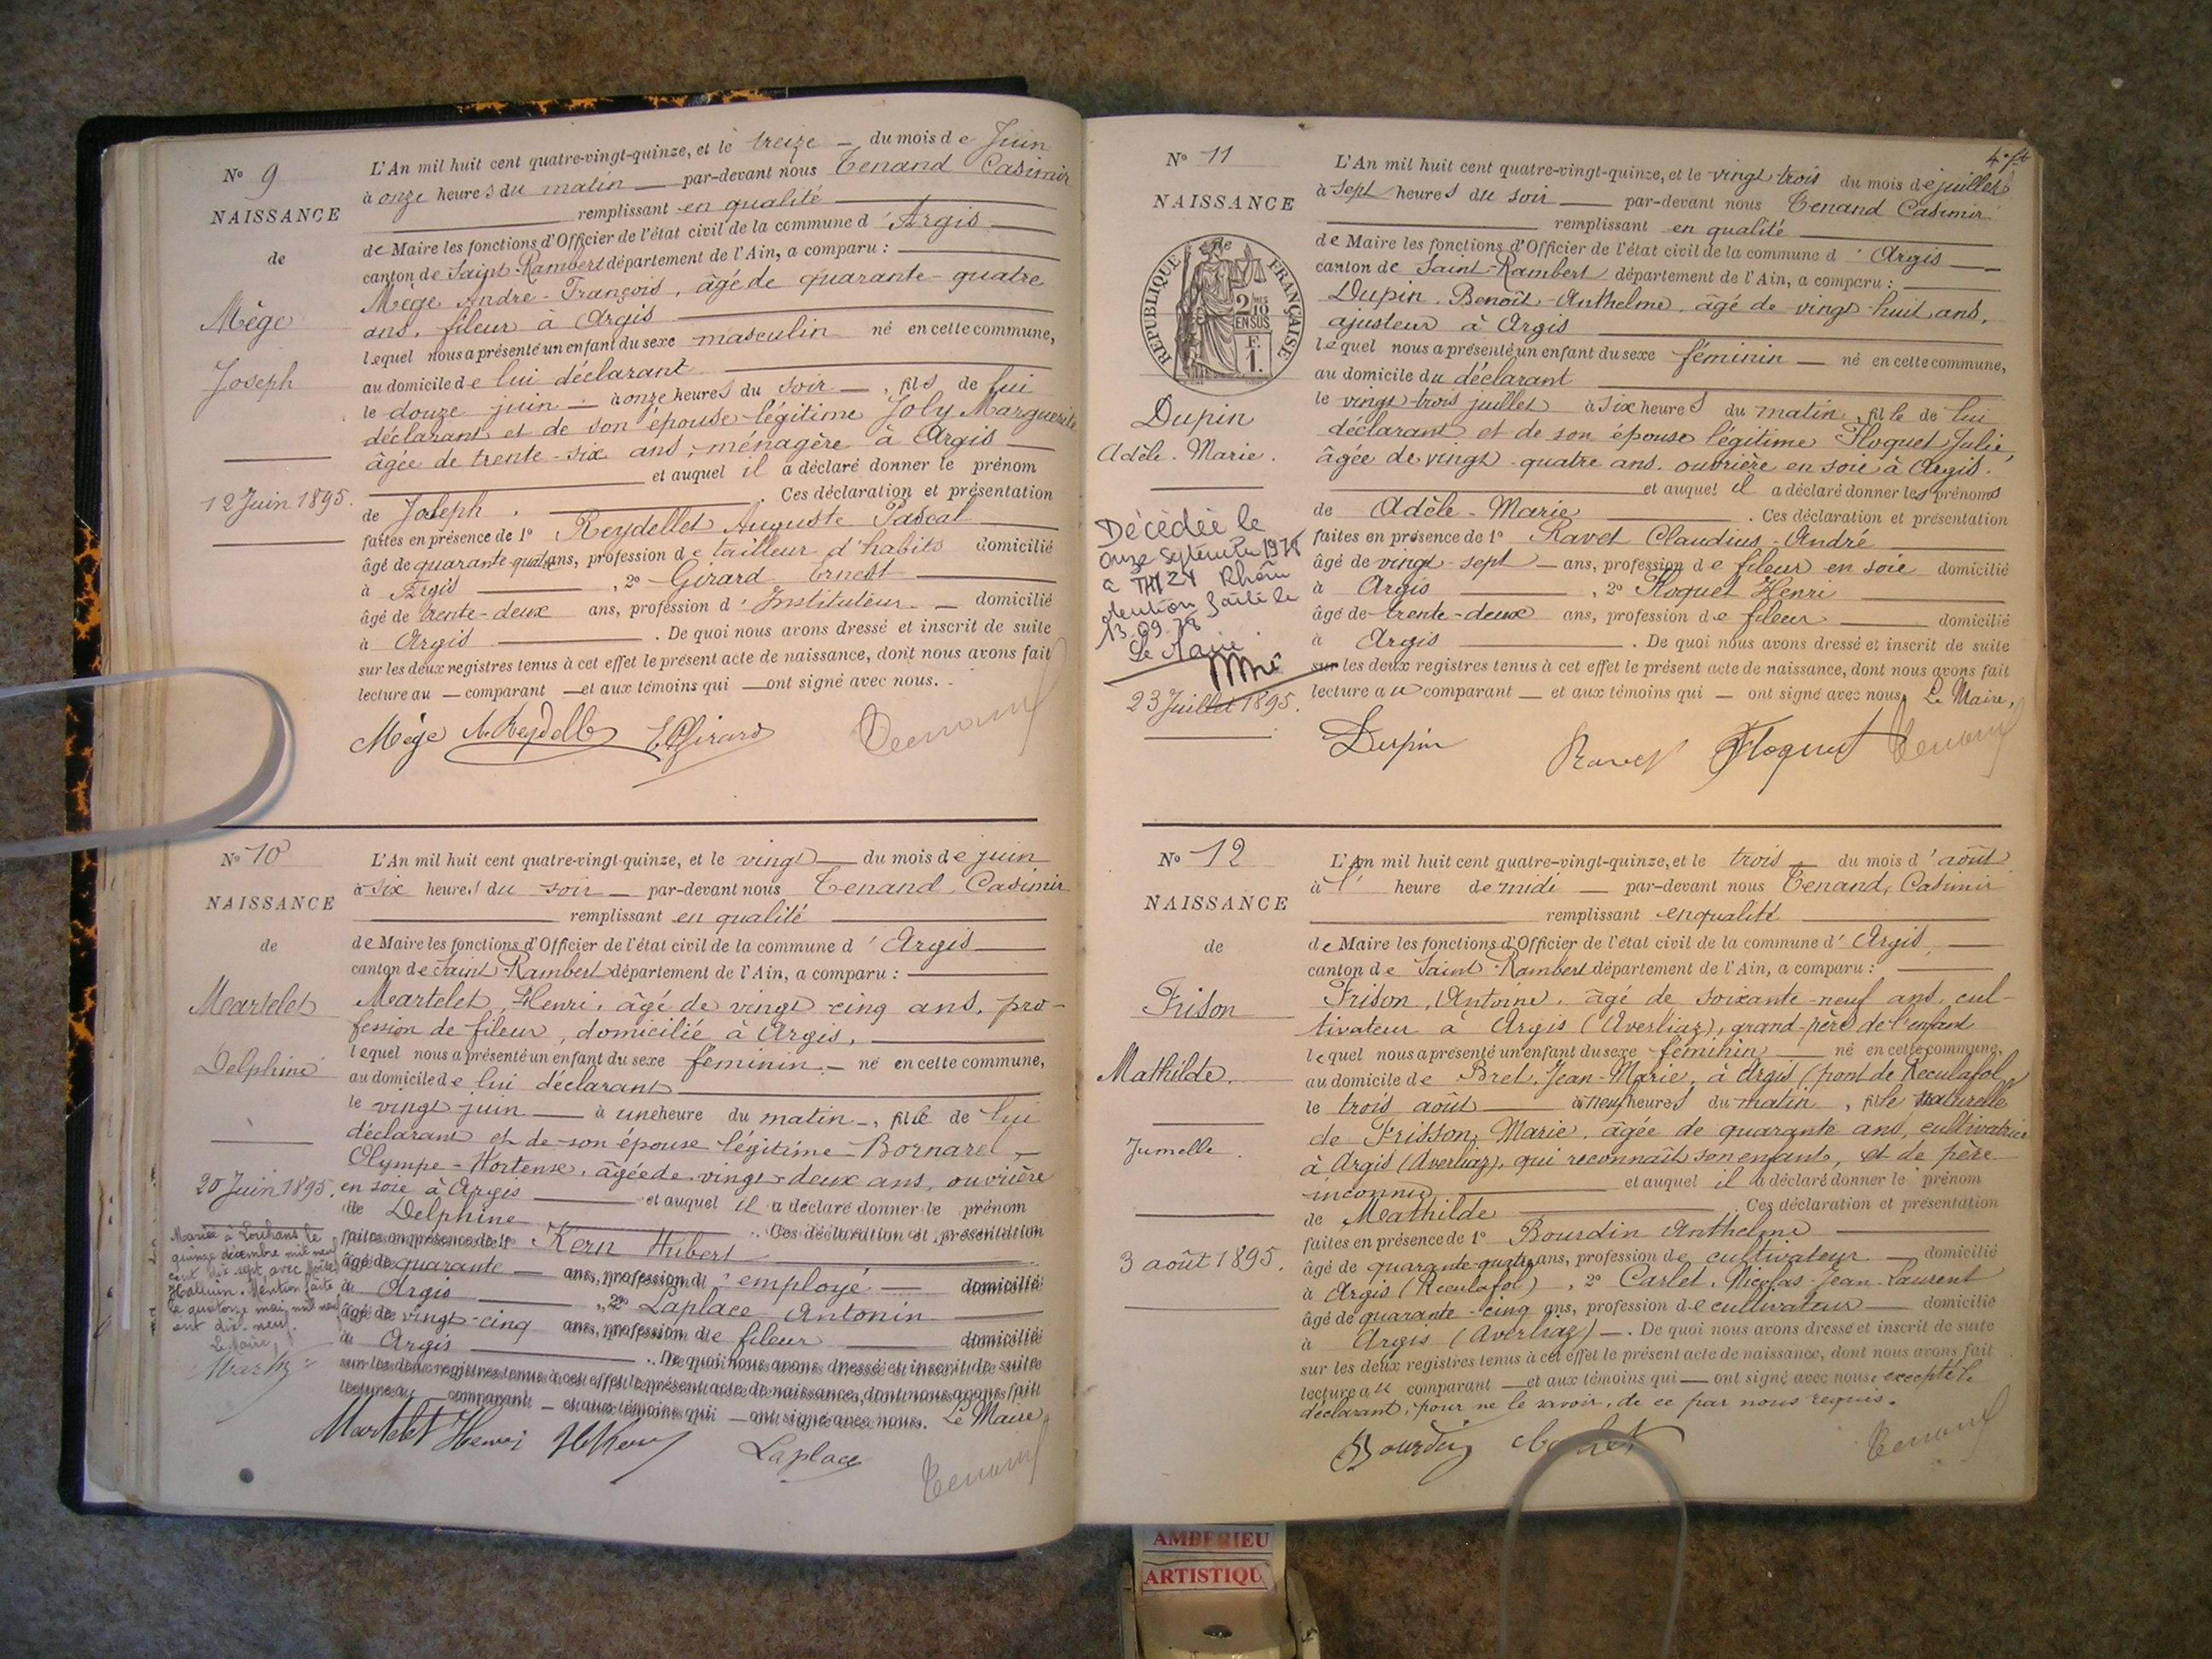 N° 9
NAISSANCE
de
Mège
Joseph
12 Juin 1895.
L'An mil huit cent quatre-vingt-quinze, et le treize — du mois de Juin
à onze heures du matin — par-devant nous Tenand Casimir
remplissant en qualité
de Maire les fonctions d'Officier de l'état civil de la commune d'Argis
canton de Saint-Rambert département de l'Ain, a comparu :
Mège André-François, âgé de quarante-quatre
ans, fileur à Argis
lequel nous a présenté un enfant du sexe masculin né en cette commune,
au domicile de lui déclarant
le douze juin — à onze heures du soir —, fils de lui
déclarant et de son épouse légitime Joly Marguerite
âgée de trente-six ans, ménagère à Argis
et auquel il a déclaré donner le prénom
de Joseph . Ces déclaration et présentation
faites en présence de 1° Reydellet Auguste Pascal
âgé de quarante-quatre ans, profession de tailleur d'habits domicilié
à Argis , 2° Girard Ernest
âgé de trente-deux ans, profession d'Instituteur — domicilié
à Argis . De quoi nous avons dressé et inscrit de suite
sur les deux registres tenus à cet effet le présent acte de naissance, dont nous avons fait
lecture au — comparant — et aux témoins qui — ont signé avec nous.
Mège A. Reydellet Girard Tenand
N° 10
NAISSANCE
de
Martelet
Delphine
20 Juin 1895.
Mariée à Louhans le
quinze décembre mil neuf
cent dix sept avec
Halluin. Mention faite
le quatorze mai mil neuf
cent dix-neuf.
Le Maire,
L'An mil huit cent quatre-vingt-quinze, et le vingt — du mois de juin
à six heures du soir — par-devant nous Tenand, Casimir
remplissant en qualité
de Maire les fonctions d'Officier de l'état civil de la commune d'Argis
canton de Saint-Rambert département de l'Ain, a comparu :
Martelet, Henri, âgé de vingt-cinq ans, pro-
fession de fileur, domicilié à Argis,
lequel nous a présenté un enfant du sexe féminin — né en cette commune,
au domicile de lui déclarant
le vingt juin — à une heure du matin —, fille de lui
déclarant et de son épouse légitime Bornarel,
Olympe-Hortense, âgée de vingt-deux ans, ouvrière
en soie à Argis et auquel il a déclaré donner le prénom
de Delphine . Ces déclaration et présentation
faites en présence de 1° Kern Hubert
âgé de quarante — ans, profession d'employé — domicilié
à Argis , 2° Laplace Antonin
âgé de vingt-cinq ans, profession de fileur domicilié
à Argis . De quoi nous avons dressé et inscrit de suite
sur les deux registres tenus à cet effet le présent acte de naissance, dont nous avons fait
lecture au comparant — et aux témoins qui — ont signé avec nous. Le Maire
Martelet Henri H Kern Laplace Tenand
4e ft
N° 11
NAISSANCE
de
RÉPUBLIQUE FRANÇAISE
2/10 EN SUS
F. 1.
Dupin
Adèle-Marie.
Décédée le
onze septembre 1978
à Rhône
Mention faite le
13.09.78
Le Maire
23 Juillet 1895.
L'An mil huit cent quatre-vingt-quinze, et le vingt-trois du mois de juillet
à sept heures du soir — par-devant nous Tenand Casimir
remplissant en qualité
de Maire les fonctions d'Officier de l'état civil de la commune d'Argis
canton de Saint-Rambert département de l'Ain, a comparu :
Dupin, Benoît-Anthelme, âgé de vingt-huit ans,
ajusteur à Argis
lequel nous a présenté un enfant du sexe féminin — né en cette commune,
au domicile du déclarant
le vingt-trois juillet à six heures du matin, fille de lui
déclarant et de son épouse légitime Floquet Julie,
âgée de vingt-quatre ans, ouvrière en soie à Argis.
et auquel il a déclaré donner les prénoms
de Adèle-Marie . Ces déclaration et présentation
faites en présence de 1° Ravet Claudius-André
âgé de vingt-sept — ans, profession de fileur en soie domicilié
à Argis , 2° Floquet Henri
âgé de trente-deux ans, profession de fileur domicilié
à Argis . De quoi nous avons dressé et inscrit de suite
sur les deux registres tenus à cet effet le présent acte de naissance, dont nous avons fait
lecture au comparant — et aux témoins qui — ont signé avec nous, Le Maire,
Dupin Ravet Floquet Tenand
N° 12
NAISSANCE
de
Frison
Mathilde.
Jumelle.
3 août 1895.
L'An mil huit cent quatre-vingt-quinze, et le trois — du mois d'août
à l' heure de midi — par-devant nous Tenand, Casimir
remplissant en qualité
de Maire les fonctions d'Officier de l'état civil de la commune d'Argis
canton de Saint-Rambert département de l'Ain, a comparu :
Frison, Antoine, âgé de soixante-neuf ans, cul-
tivateur à Argis (Averliaz), grand-père de l'enfant
lequel nous a présenté un enfant du sexe féminin — né en cette commune,
au domicile de Bret, Jean-Marie, à Argis (pont de Reculafol
le trois août — à neuf heures du matin, fille naturelle
de Frisson, Marie, âgée de quarante ans, cultivatrice
à Argis (Averliaz), qui reconnaît son enfant, et de père
inconnu et auquel il a déclaré donner le prénom
de Mathilde . Ces déclaration et présentation
faites en présence de 1° Bourdin Anthelme
âgé de quarante-quatre ans, profession de cultivateur — domicilié
à Argis (Reculafol) , 2° Carlet, Nicolas-Jean-Laurent
âgé de quarante-cinq ans, profession de cultivateur — domicilié
à Argis (Averliaz) —. De quoi nous avons dressé et inscrit de suite
sur les deux registres tenus à cet effet le présent acte de naissance, dont nous avons fait
lecture au comparant — et aux témoins qui — ont signé avec nous, excepté le
déclarant, pour ne le savoir, de ce par nous requis.
Bourdin Carlet Tenand
AMBERIEU
ARTISTIQU